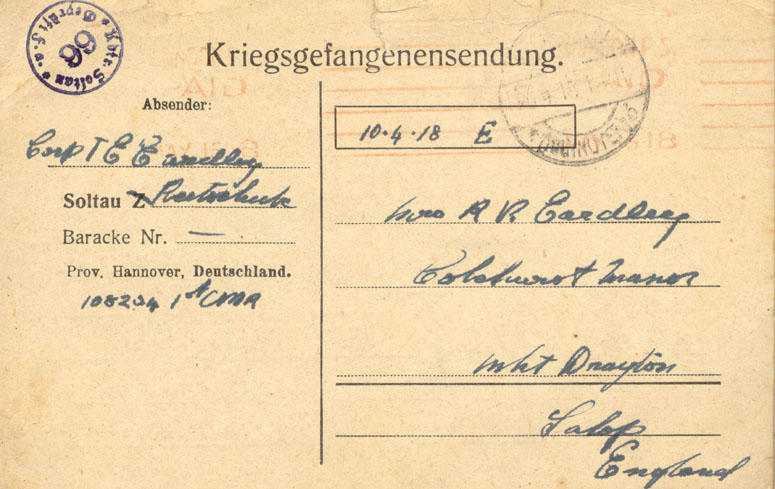 Kdtr. Soltau
Geprüft F. a.
66
Kriegsgefangenensendung.
Absender:
Corp T E Eardley
Soltau Z
Baracke Nr. —
Prov. Hannover, Deutschland.
108234 1st CMR
10.4.18 E
Mrs R R Eardley
Colehurst Manor
Mkt Drayton
Salop
England